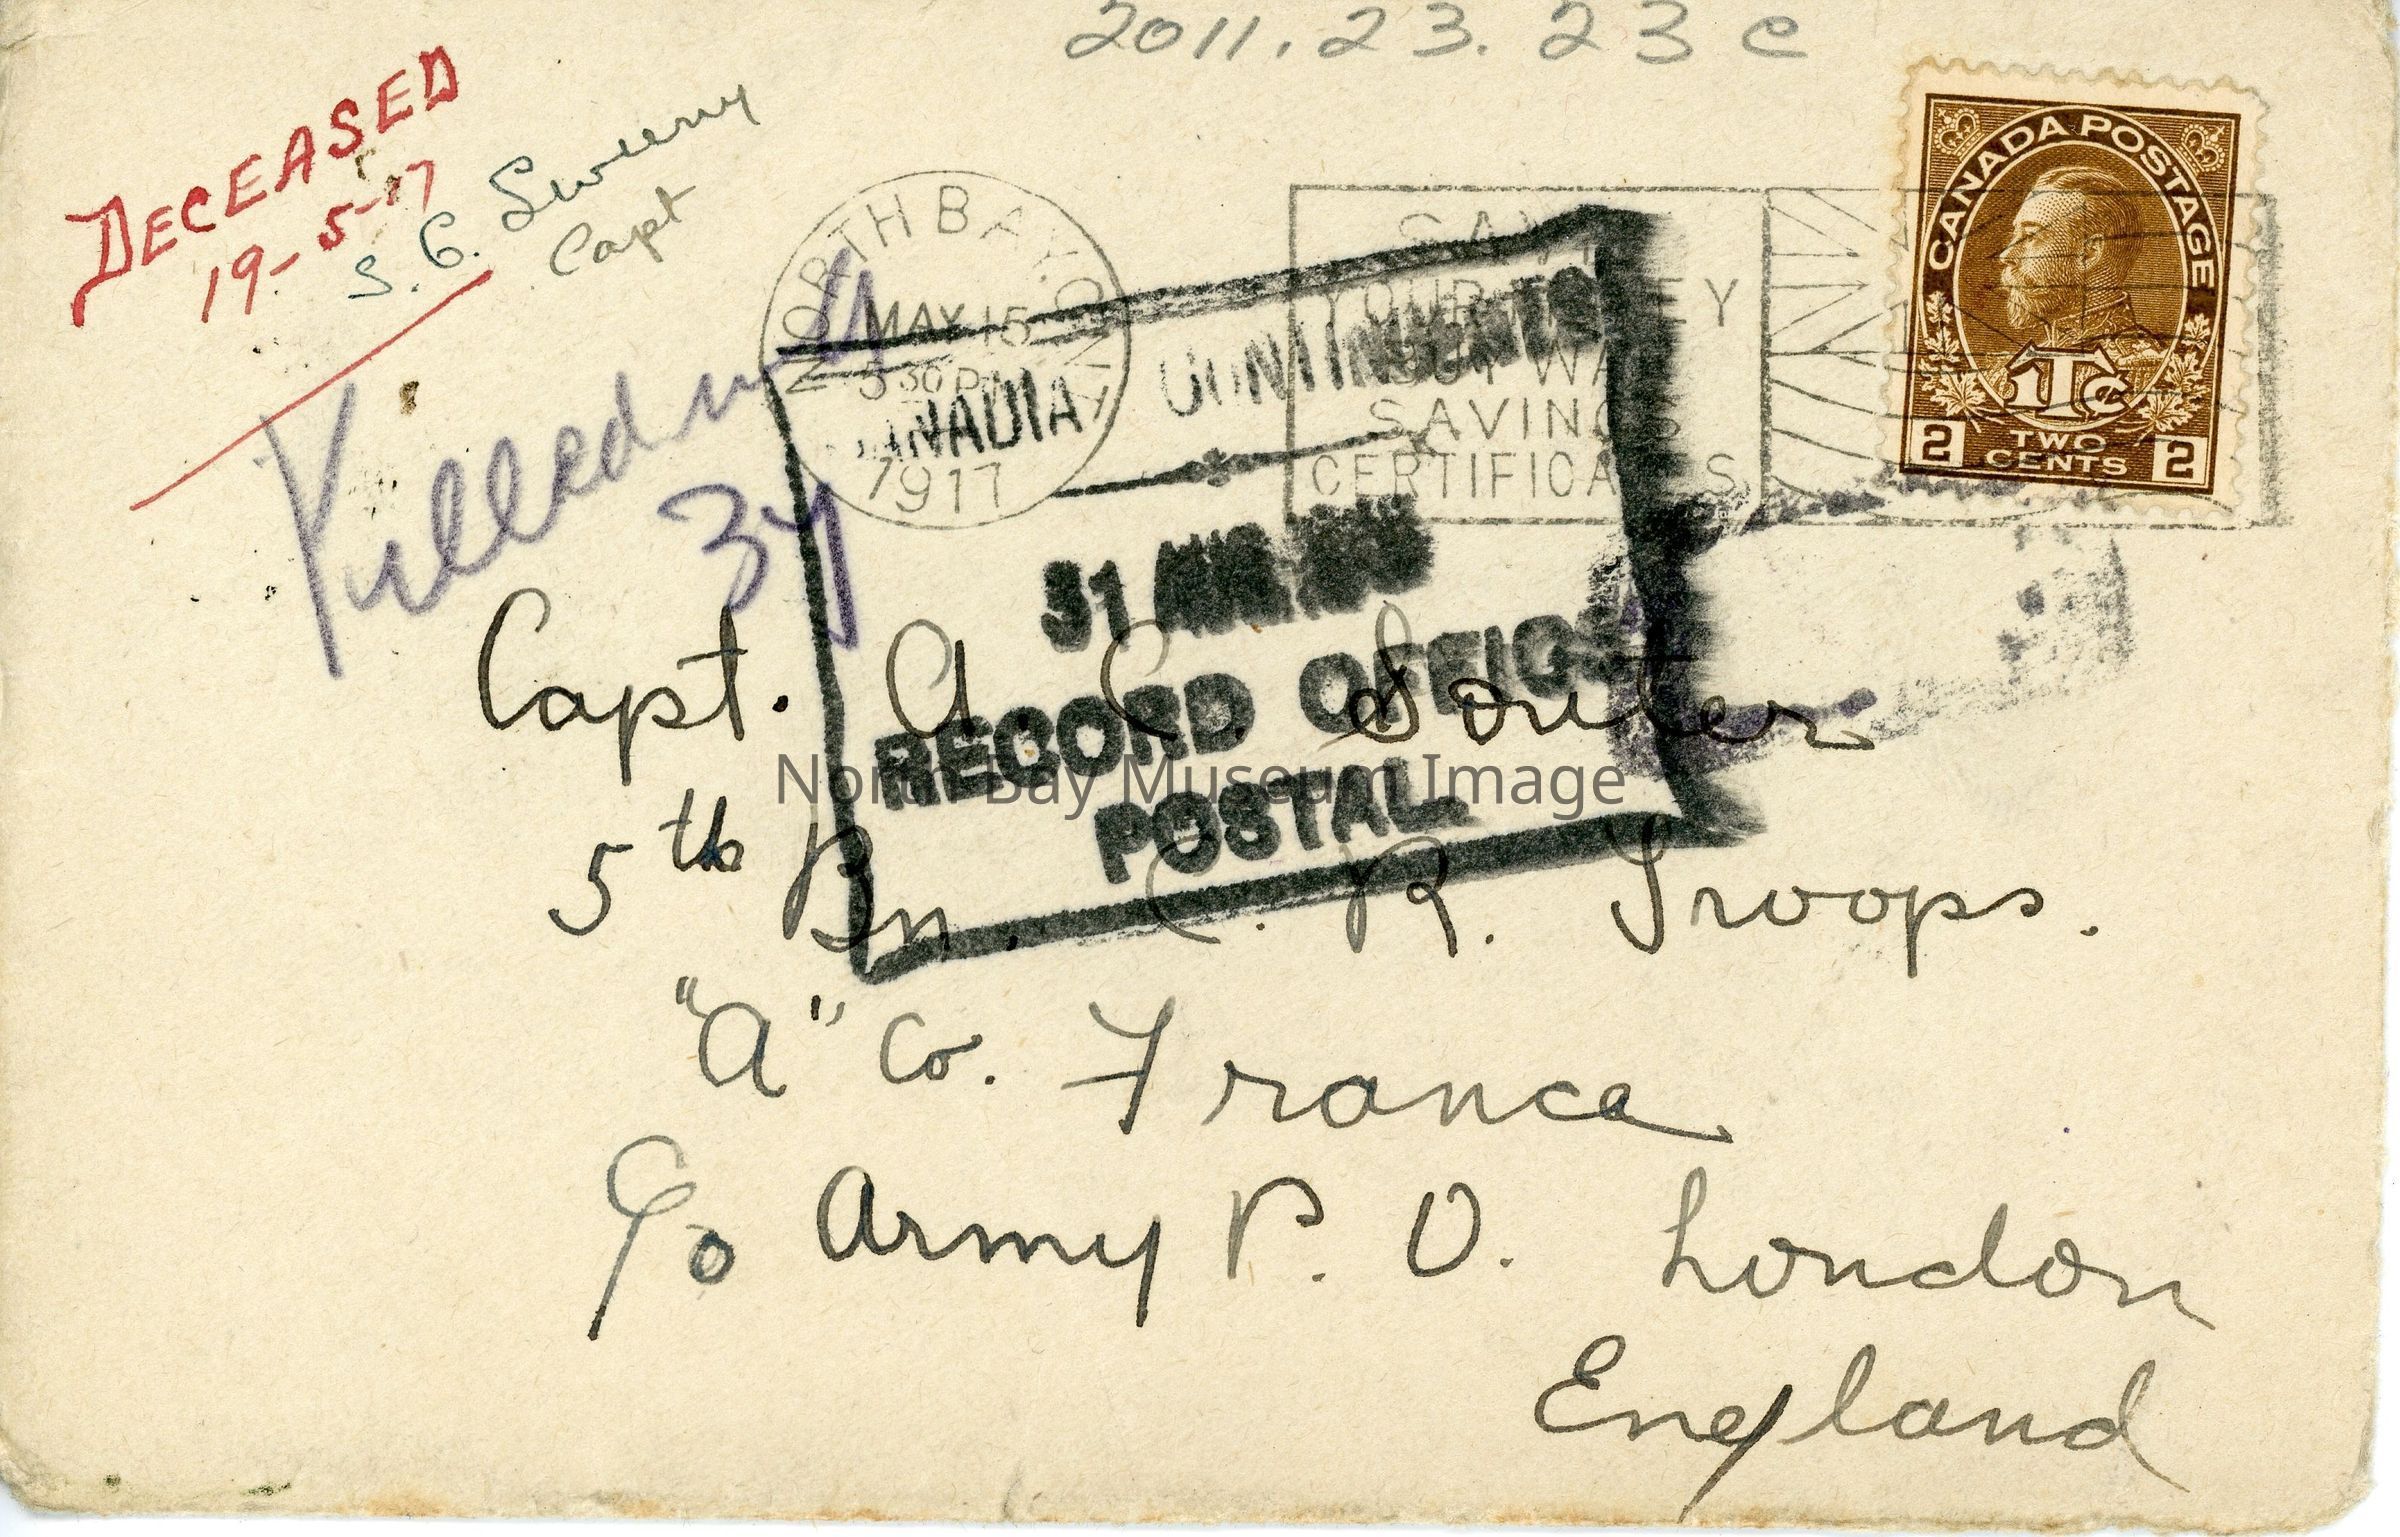 2011.23.23 c
DECEASED
19-5-17
S. G.
Capt
NORTH BAY. ONT
MAY 15
5 30 P
1917
SAVE
YOUR MONEY
BUY WAR
SAVINGS
CERTIFICATES
CANADA POSTAGE
1Tc
2 TWO CENTS 2
Killed
CANADIAN CONTINGENTS
31
RECORD OFFICE
POSTAL.
Capt. A. C. Souter
5th Bn. C. R. Troops.
"A" Co. France
c/o Army P. O. London
England
North Bay Museum Image